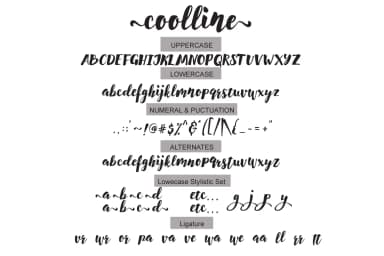 coolline
UPPERCASE
ABCDEFGHIJKLMNOPQRSTUVWXYZ
LOWERCASE
abcdefghijklmnopqrstuvwxyz
NUMERAL & PUCTUATION
.,:;"~!@#$%^&*([/|\{_-=+"
ALTERNATES
abcdefghijklmnopqrstuvwxyz
Lowecase Stylistic Set
a b c d etc... g j p y
a b c d etc...
Ligature
vr wr or pa va ve wa we aa ll rr tt